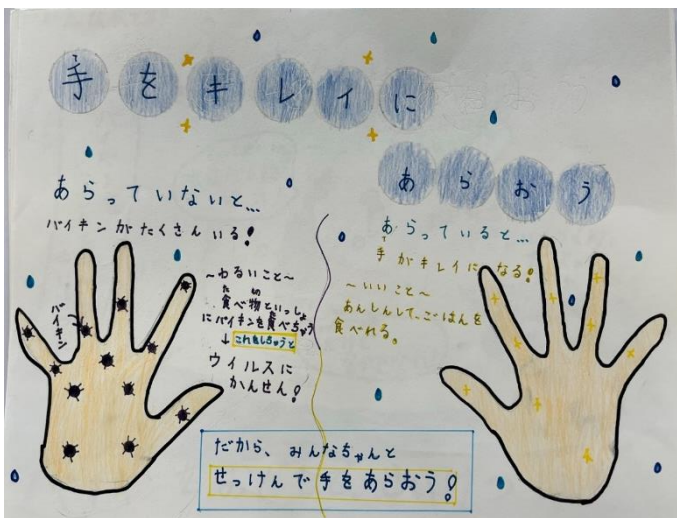 手をキレイに
あらおう
あらっていないと…
バイキンがたくさんいる!
〜わるいこと〜
食べ物といっしょ
にバイキンを食べちゃう
↓これをしちゃうと
ウイルスに
かんせん!
バイキン
あらっていると…
手がキレイになる!
〜いいこと〜
あんしんして、ごはんを
食べれる。
だから、みんなちゃんと
せっけんで手をあらおう!